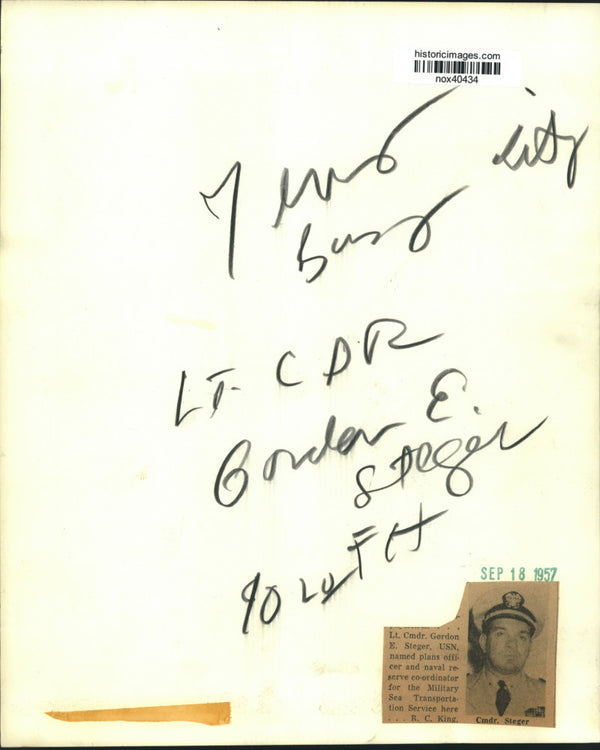 historicimages.com
nox40434
City
LT. CDR
Gordon E.
Steger
SEP 18 1957
Lt. Cmdr. Gordon
E. Steger, USN,
named plans offi-
cer and naval re-
serve co-ordinator
for the Military
Sea Transporta-
tion Service here
. . . R. C. King,
Cmdr. Steger